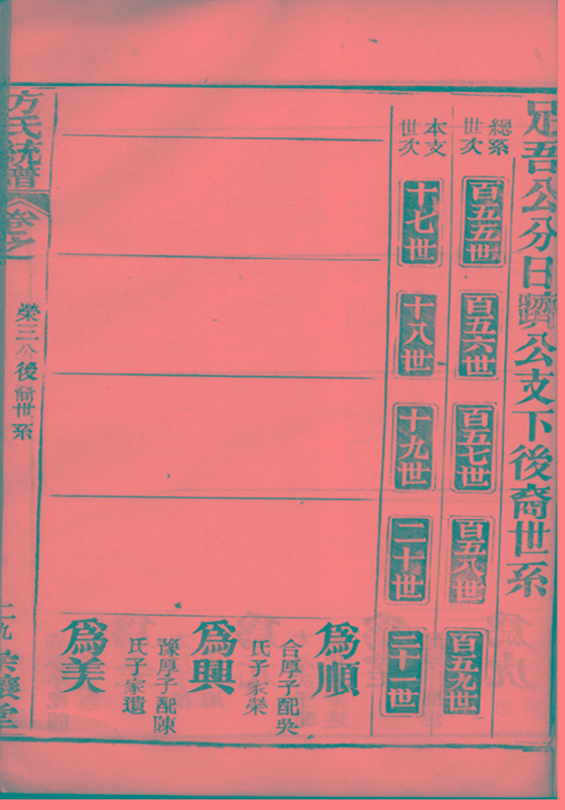 足吾公分日躋公支下後裔世系
總系世次
百五五世
百五六世
百五七世
百五八世
百五九世
本支世次
十七世
十八世
十九世
二十世
二十一世
為順
合厚子配吳
氏子家榮
為興
豫厚子配陳
氏子家遺
為美
方氏統譜
卷之
榮三公後裔世系